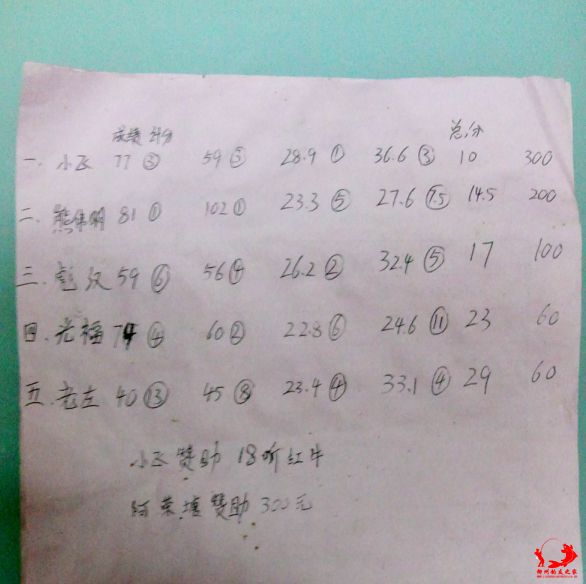 成绩 计分 总分
一. 小飞 77 ③ 59 ③ 28.9 ① 36.6 ③ 10 300
二. 熊伟明 81 ① 102 ① 23.3 ⑤ 27.6 7.5 14.5 200
三. 彪汉 59 ⑥ 56 ④ 26.2 ② 32.4 ⑤ 17 100
四. 光福 74 ④ 60 ② 22.8 ⑥ 24.6 ⑪ 23 60
五. 老左 40 ⑬ 45 ⑧ 23.4 ④ 33.1 ④ 29 60
小飞赞助 18听红牛
阿荣塘赞助 300元
柳州钓友之家